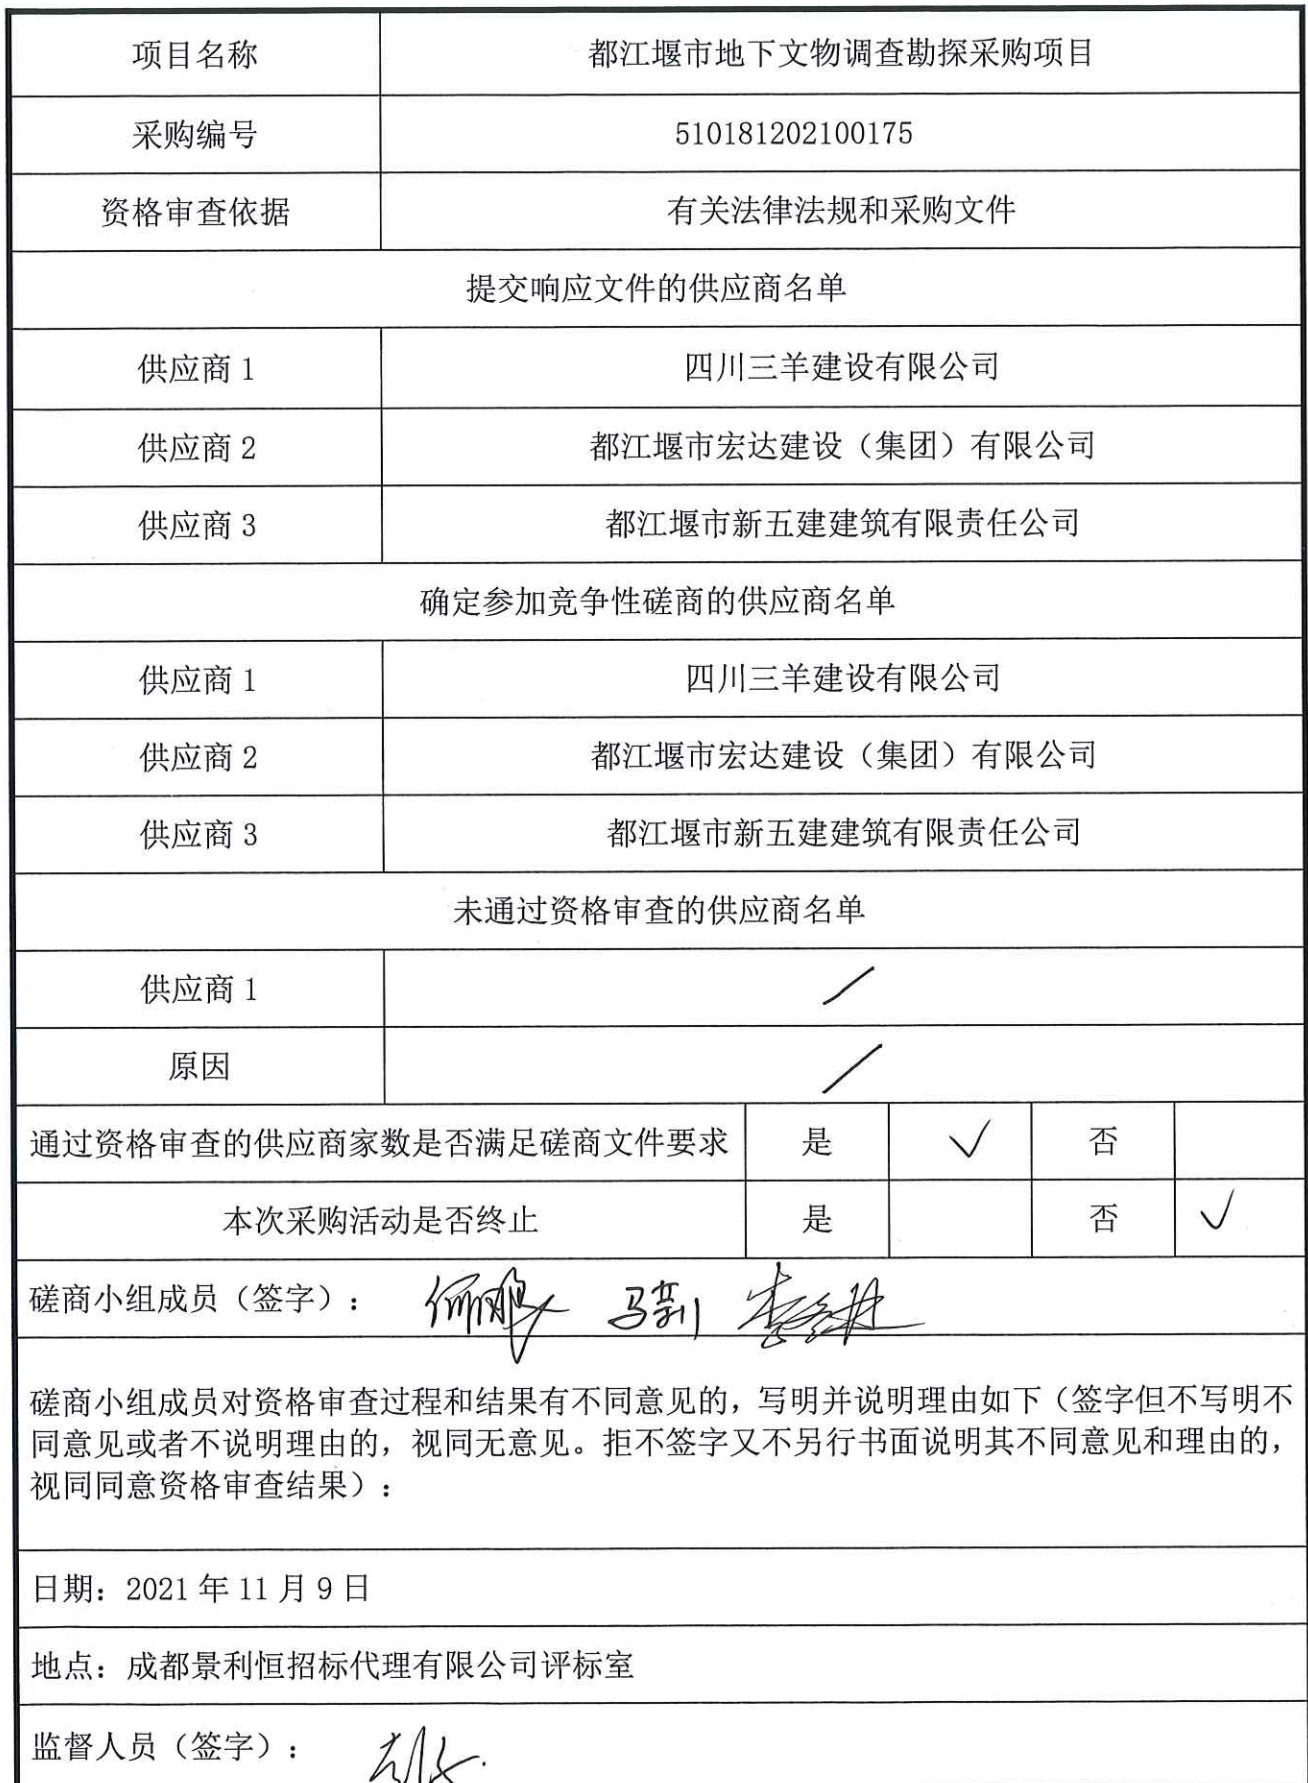 项目名称 都江堰市地下文物调查勘探采购项目
采购编号 510181202100175
资格审查依据 有关法律法规和采购文件
提交响应文件的供应商名单
供应商 1 四川三羊建设有限公司
供应商 2 都江堰市宏达建设（集团）有限公司
供应商 3 都江堰市新五建建筑有限责任公司
确定参加竞争性磋商的供应商名单
供应商 1 四川三羊建设有限公司
供应商 2 都江堰市宏达建设（集团）有限公司
供应商 3 都江堰市新五建建筑有限责任公司
未通过资格审查的供应商名单
供应商 1 /
原因 /
通过资格审查的供应商家数是否满足磋商文件要求 是 √ 否
本次采购活动是否终止 是 否 √
磋商小组成员（签字）：
磋商小组成员对资格审查过程和结果有不同意见的，写明并说明理由如下（签字但不写明不
同意见或者不说明理由的，视同无意见。拒不签字又不另行书面说明其不同意见和理由的，
视同同意资格审查结果）：
日期：2021 年 11 月 9 日
地点：成都景利恒招标代理有限公司评标室
监督人员（签字）：